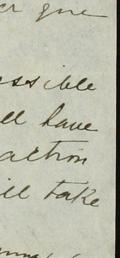 give
ssible
ll have
action
ill take